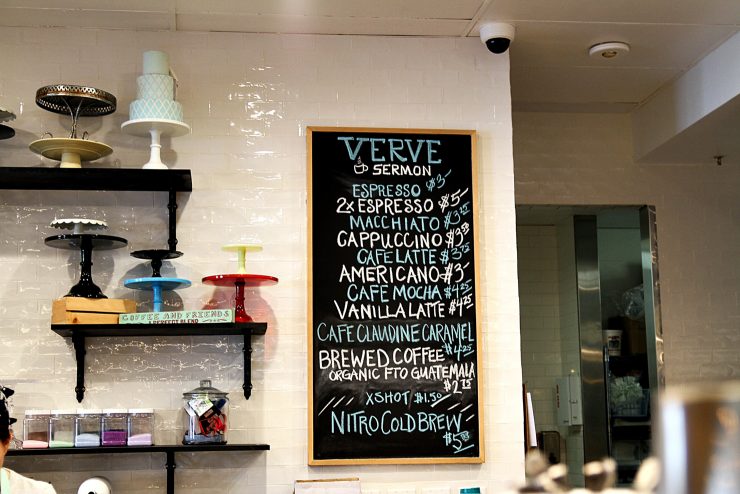 VERVE
SERMON
ESPRESSO $3-
2X ESPRESSO $5-
MACCHIATO $3.25
CAPPUCCINO $3.75
CAFE LATTE $3.75
AMERICANO $3-
CAFE MOCHA $4.25
VANILLA LATTE $4.25
CAFE CLAUDINE CARAMEL
$4.25
BREWED COFFEE
ORGANIC FTO GUATEMALA
$2.75
XSHOT $1.50
NITRO COLD BREW
COFFEE AND FRIENDS
A PERFECT BLEND